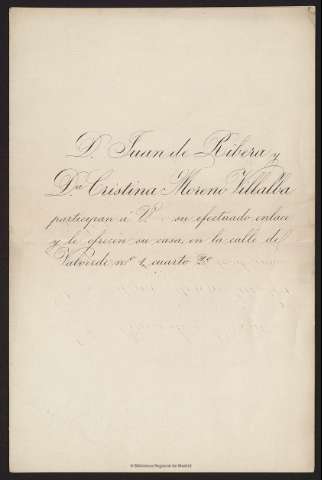 D. Juan de Ribera y
Dª Cristina Moreno Villalba
participan á V. su efectuado enlace
y le ofrecen su casa, en la calle de
Valverde nº 1, cuarto 2º
© Biblioteca Regional de Madrid